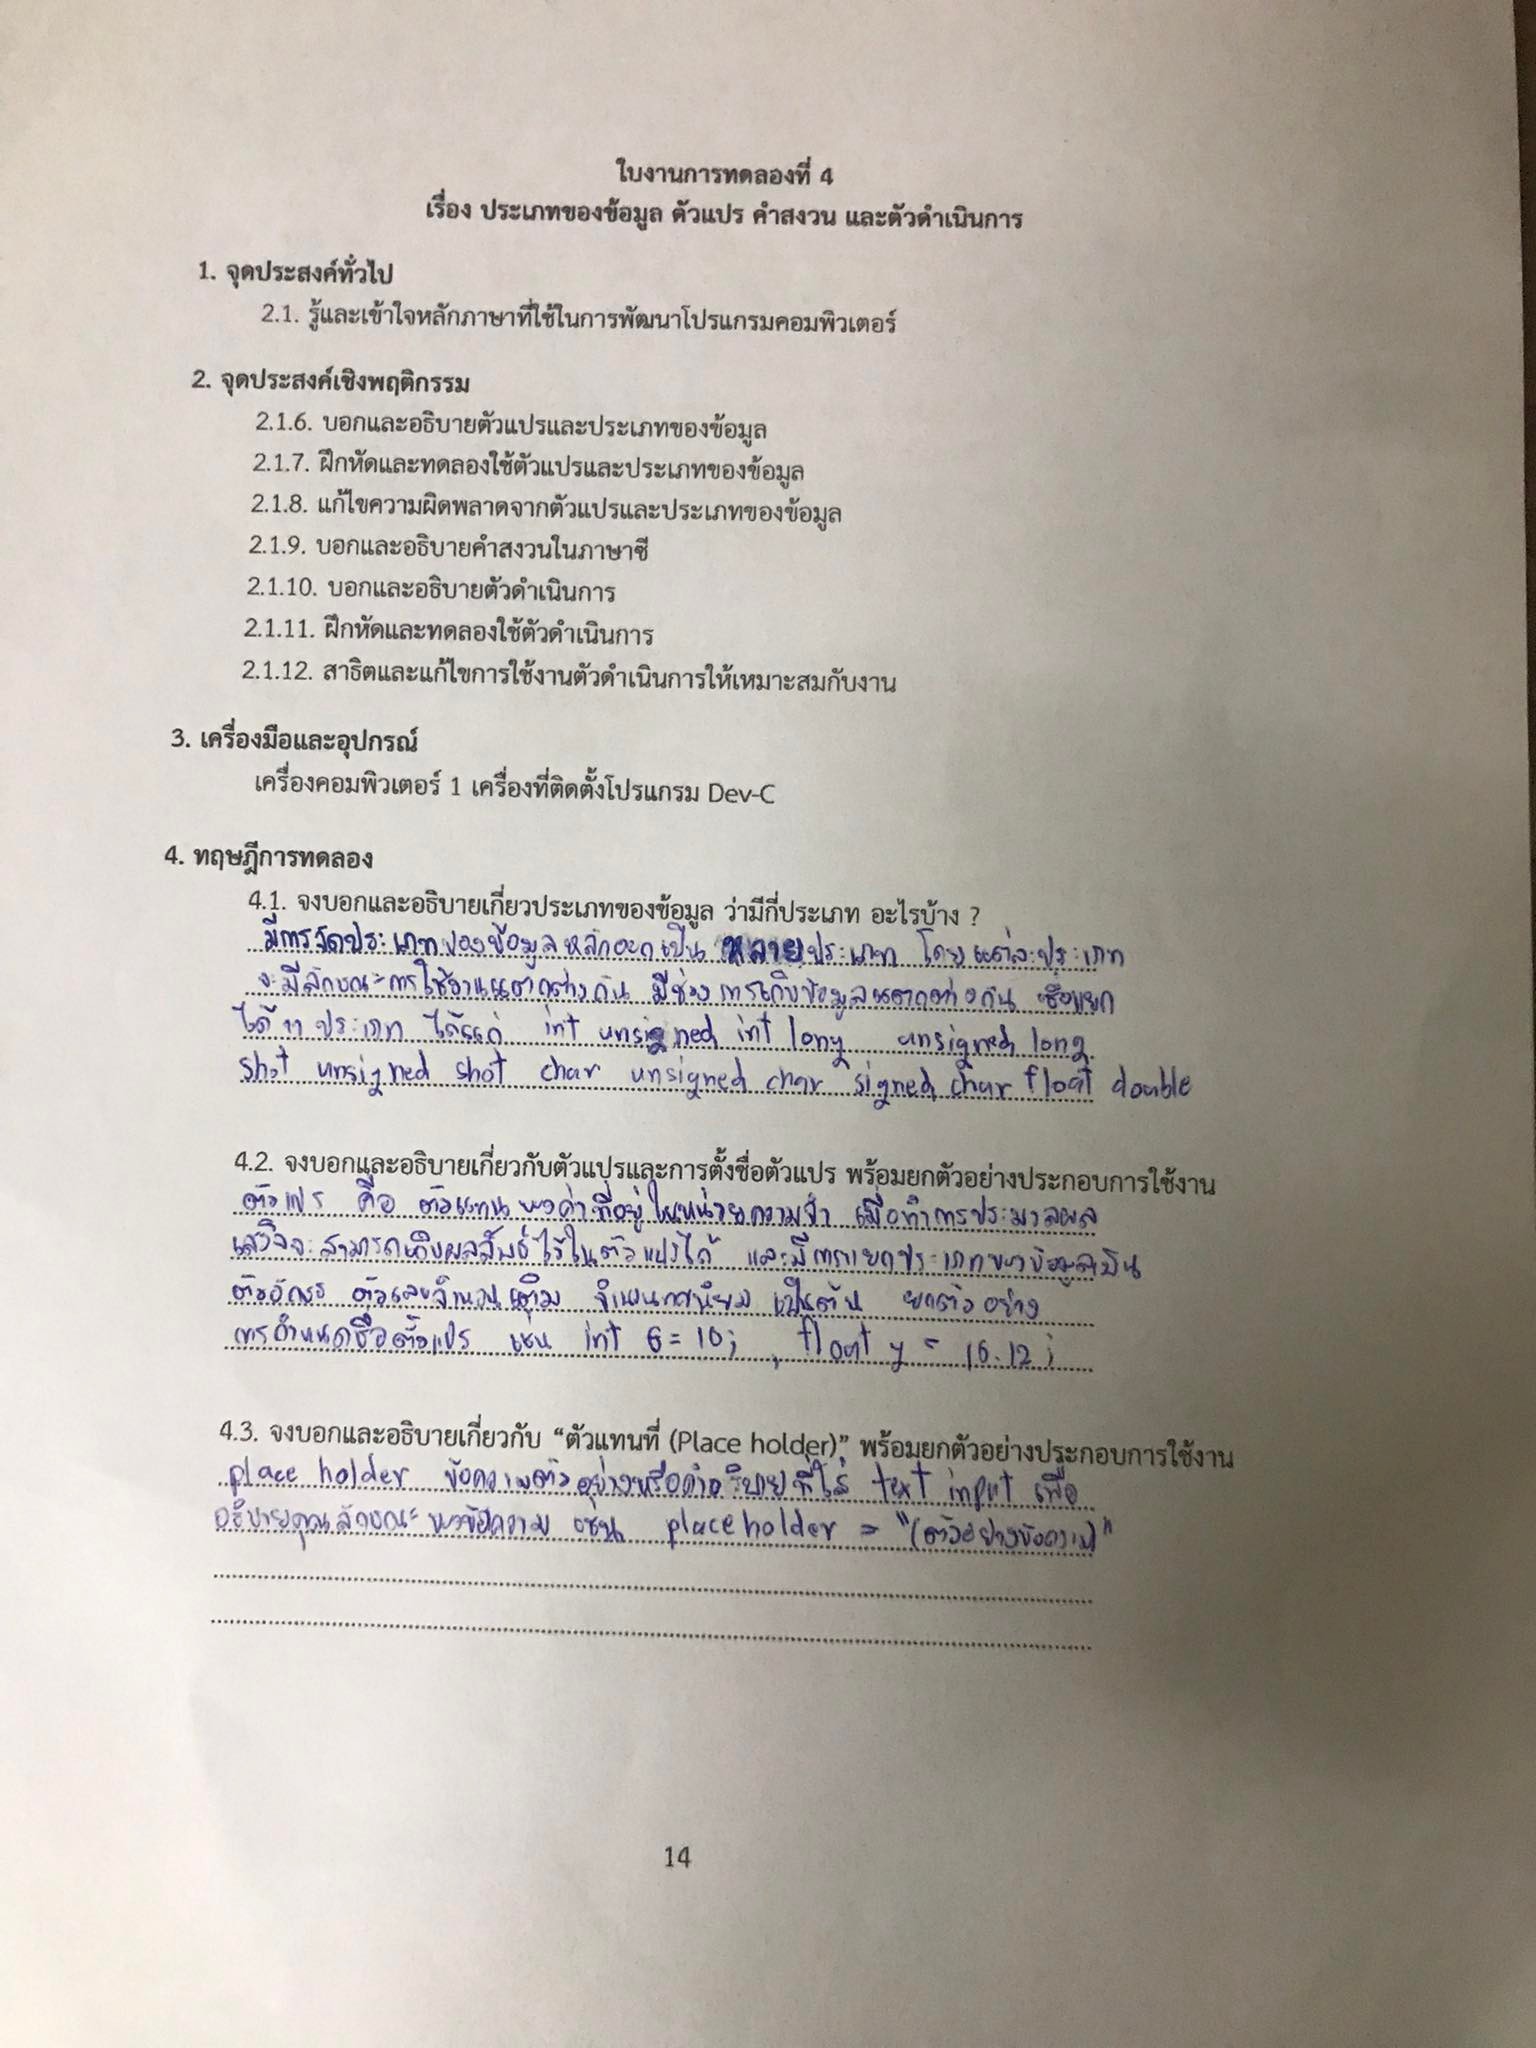 ใบงานการทดลองที่ 4
เรื่อง ประเภทของข้อมูล ตัวแปร คำสงวน และตัวดำเนินการ
1. จุดประสงค์ทั่วไป
2.1. รู้และเข้าใจหลักภาษาที่ใช้ในการพัฒนาโปรแกรมคอมพิวเตอร์
2. จุดประสงค์เชิงพฤติกรรม
2.1.6. บอกและอธิบายตัวแปรและประเภทของข้อมูล
2.1.7. ฝึกหัดและทดลองใช้ตัวแปรและประเภทของข้อมูล
2.1.8. แก้ไขความผิดพลาดจากตัวแปรและประเภทของข้อมูล
2.1.9. บอกและอธิบายคำสงวนในภาษาซี
2.1.10. บอกและอธิบายตัวดำเนินการ
2.1.11. ฝึกหัดและทดลองใช้ตัวดำเนินการ
2.1.12. สาธิตและแก้ไขการใช้งานตัวดำเนินการให้เหมาะสมกับงาน
3. เครื่องมือและอุปกรณ์
เครื่องคอมพิวเตอร์ 1 เครื่องที่ติดตั้งโปรแกรม Dev-C
4. ทฤษฎีการทดลอง
4.1. จงบอกและอธิบายเกี่ยวประเภทของข้อมูล ว่ามีกี่ประเภท อะไรบ้าง ?
มีการจัดประเภทของข้อมูลหลักออกเป็น หลายประเภท โดยแต่ละประเภท
จะมีลักษณะการใช้งานแตกต่างกัน มีช่วงการเก็บข้อมูลแตกต่างกัน ซึ่งแยก
ได้ 11 ประเภท ได้แก่ int unsigned int long unsigned long
shot unsigned shot char unsigned char signed char float double
4.2. จงบอกและอธิบายเกี่ยวกับตัวแปรและการตั้งชื่อตัวแปร พร้อมยกตัวอย่างประกอบการใช้งาน
ตัวแปร คือ ตัวแทนของค่าที่อยู่ในหน่วยความจำ เมื่อทำการประมวลผล
เสร็จจะสามารถเก็บผลลัพธ์ไว้ในตัวแปรได้ และมีการแยกประเภทของข้อมูลเป็น
ตัวอักษร ตัวเลขจำนวนเต็ม จำนวนทศนิยม เป็นต้น ยกตัวอย่าง
การกำหนดชื่อตัวแปร เช่น int 6 = 10; , float y = 16.12;
4.3. จงบอกและอธิบายเกี่ยวกับ “ตัวแทนที่ (Place holder)” พร้อมยกตัวอย่างประกอบการใช้งาน
place holder ข้อความตัวอย่างหรือคำอธิบายที่ใส่ text input เพื่อ
อธิบายคุณลักษณะของข้อความ เช่น placeholder = "(ตัวอย่างข้อความ)"
14